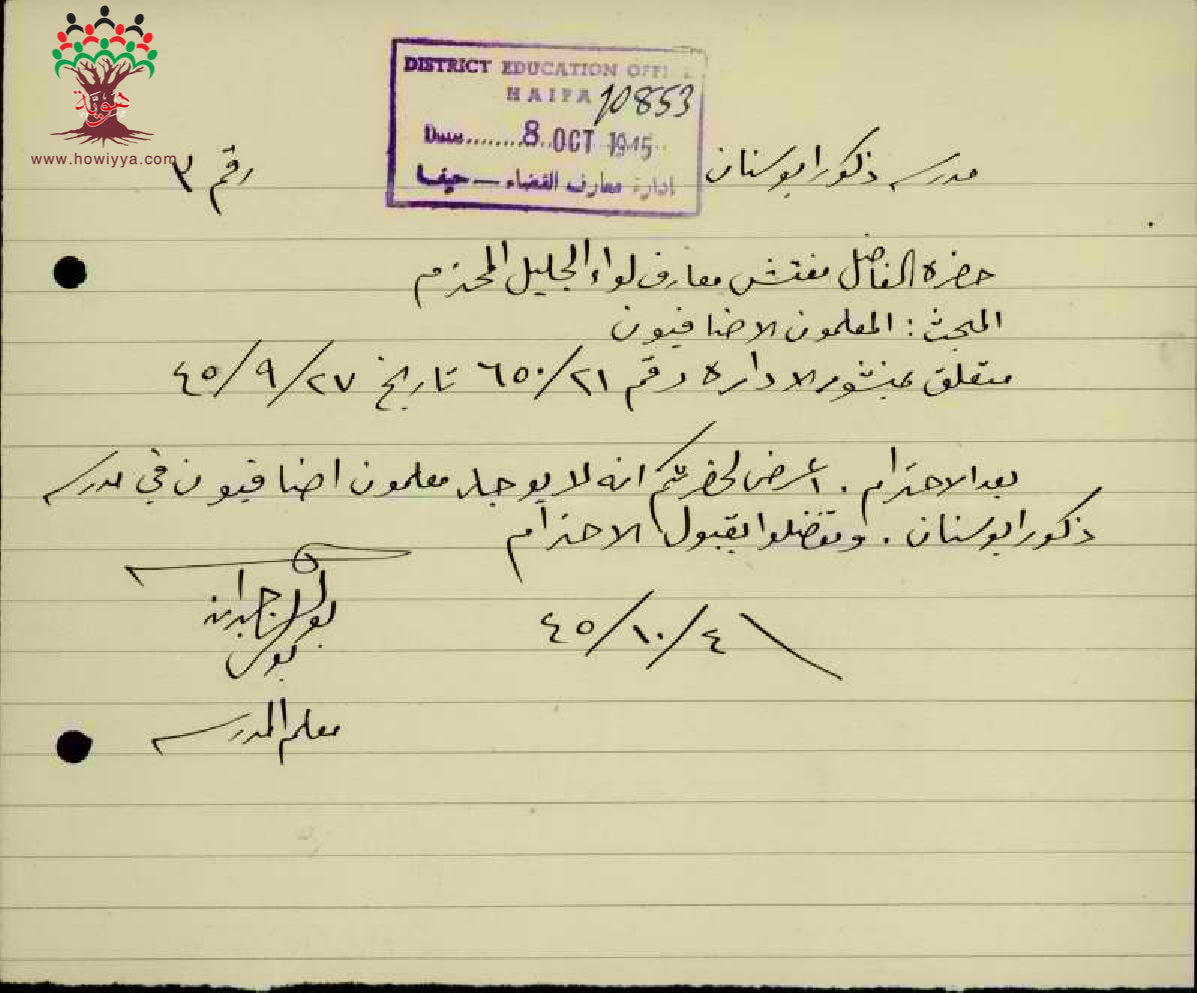 هوية
www.howiyya.com
DISTRICT EDUCATION OFFICE
HAIFA 10853
Date........8 OCT 1945
ادارة معارف القضاء — حيفا
مدرسه ذكور ابوسنان
رقم ٣
حضرة الفاضل مفتش معارف لواء الجليل المحترم
المبحث : المعلمون الاضافيون
متعلق بمنشور الادارة رقم ٦٥٠/٢١ تاريخ ٤٥/٩/٢٧
بعد الاحترام . اعرض لحضرتكم انه لا يوجد معلمون اضافيون في مدرسه
ذكور ابوسنان . وتفضلوا بقبول الاحترام
٤٥/١٠/٤
بولس
معلم المدرسه